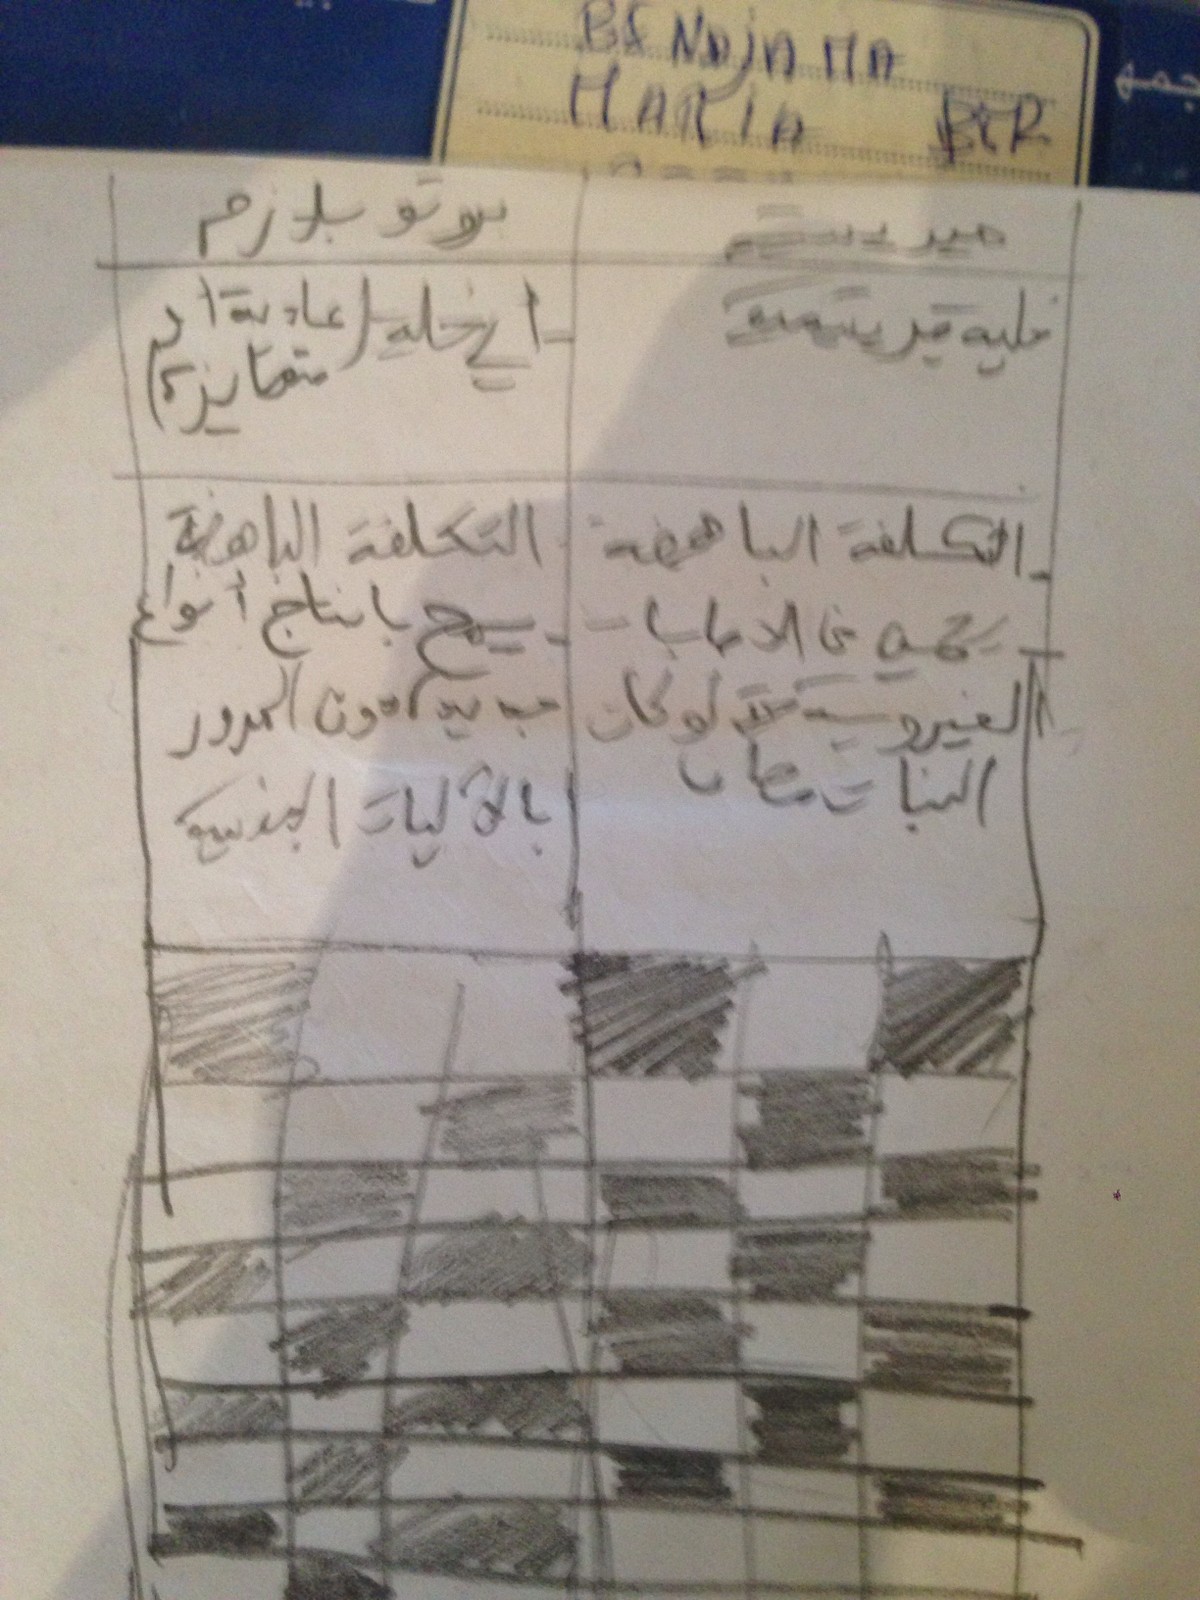 BENDJAMA
MARIA BER
ميريستم
بروتوبلازم
خلية ميريستيمية
- أي خلية (عادية أو
متمايزة)
- التكلفة الباهضة
- يحمي من الاصابات
الفيروسية حتى لو كان
النبات مصاب
- التكلفة الباهضة
- يسمح بانتاج أنواع
جديدة دون المرور
بالآليات الجنسية